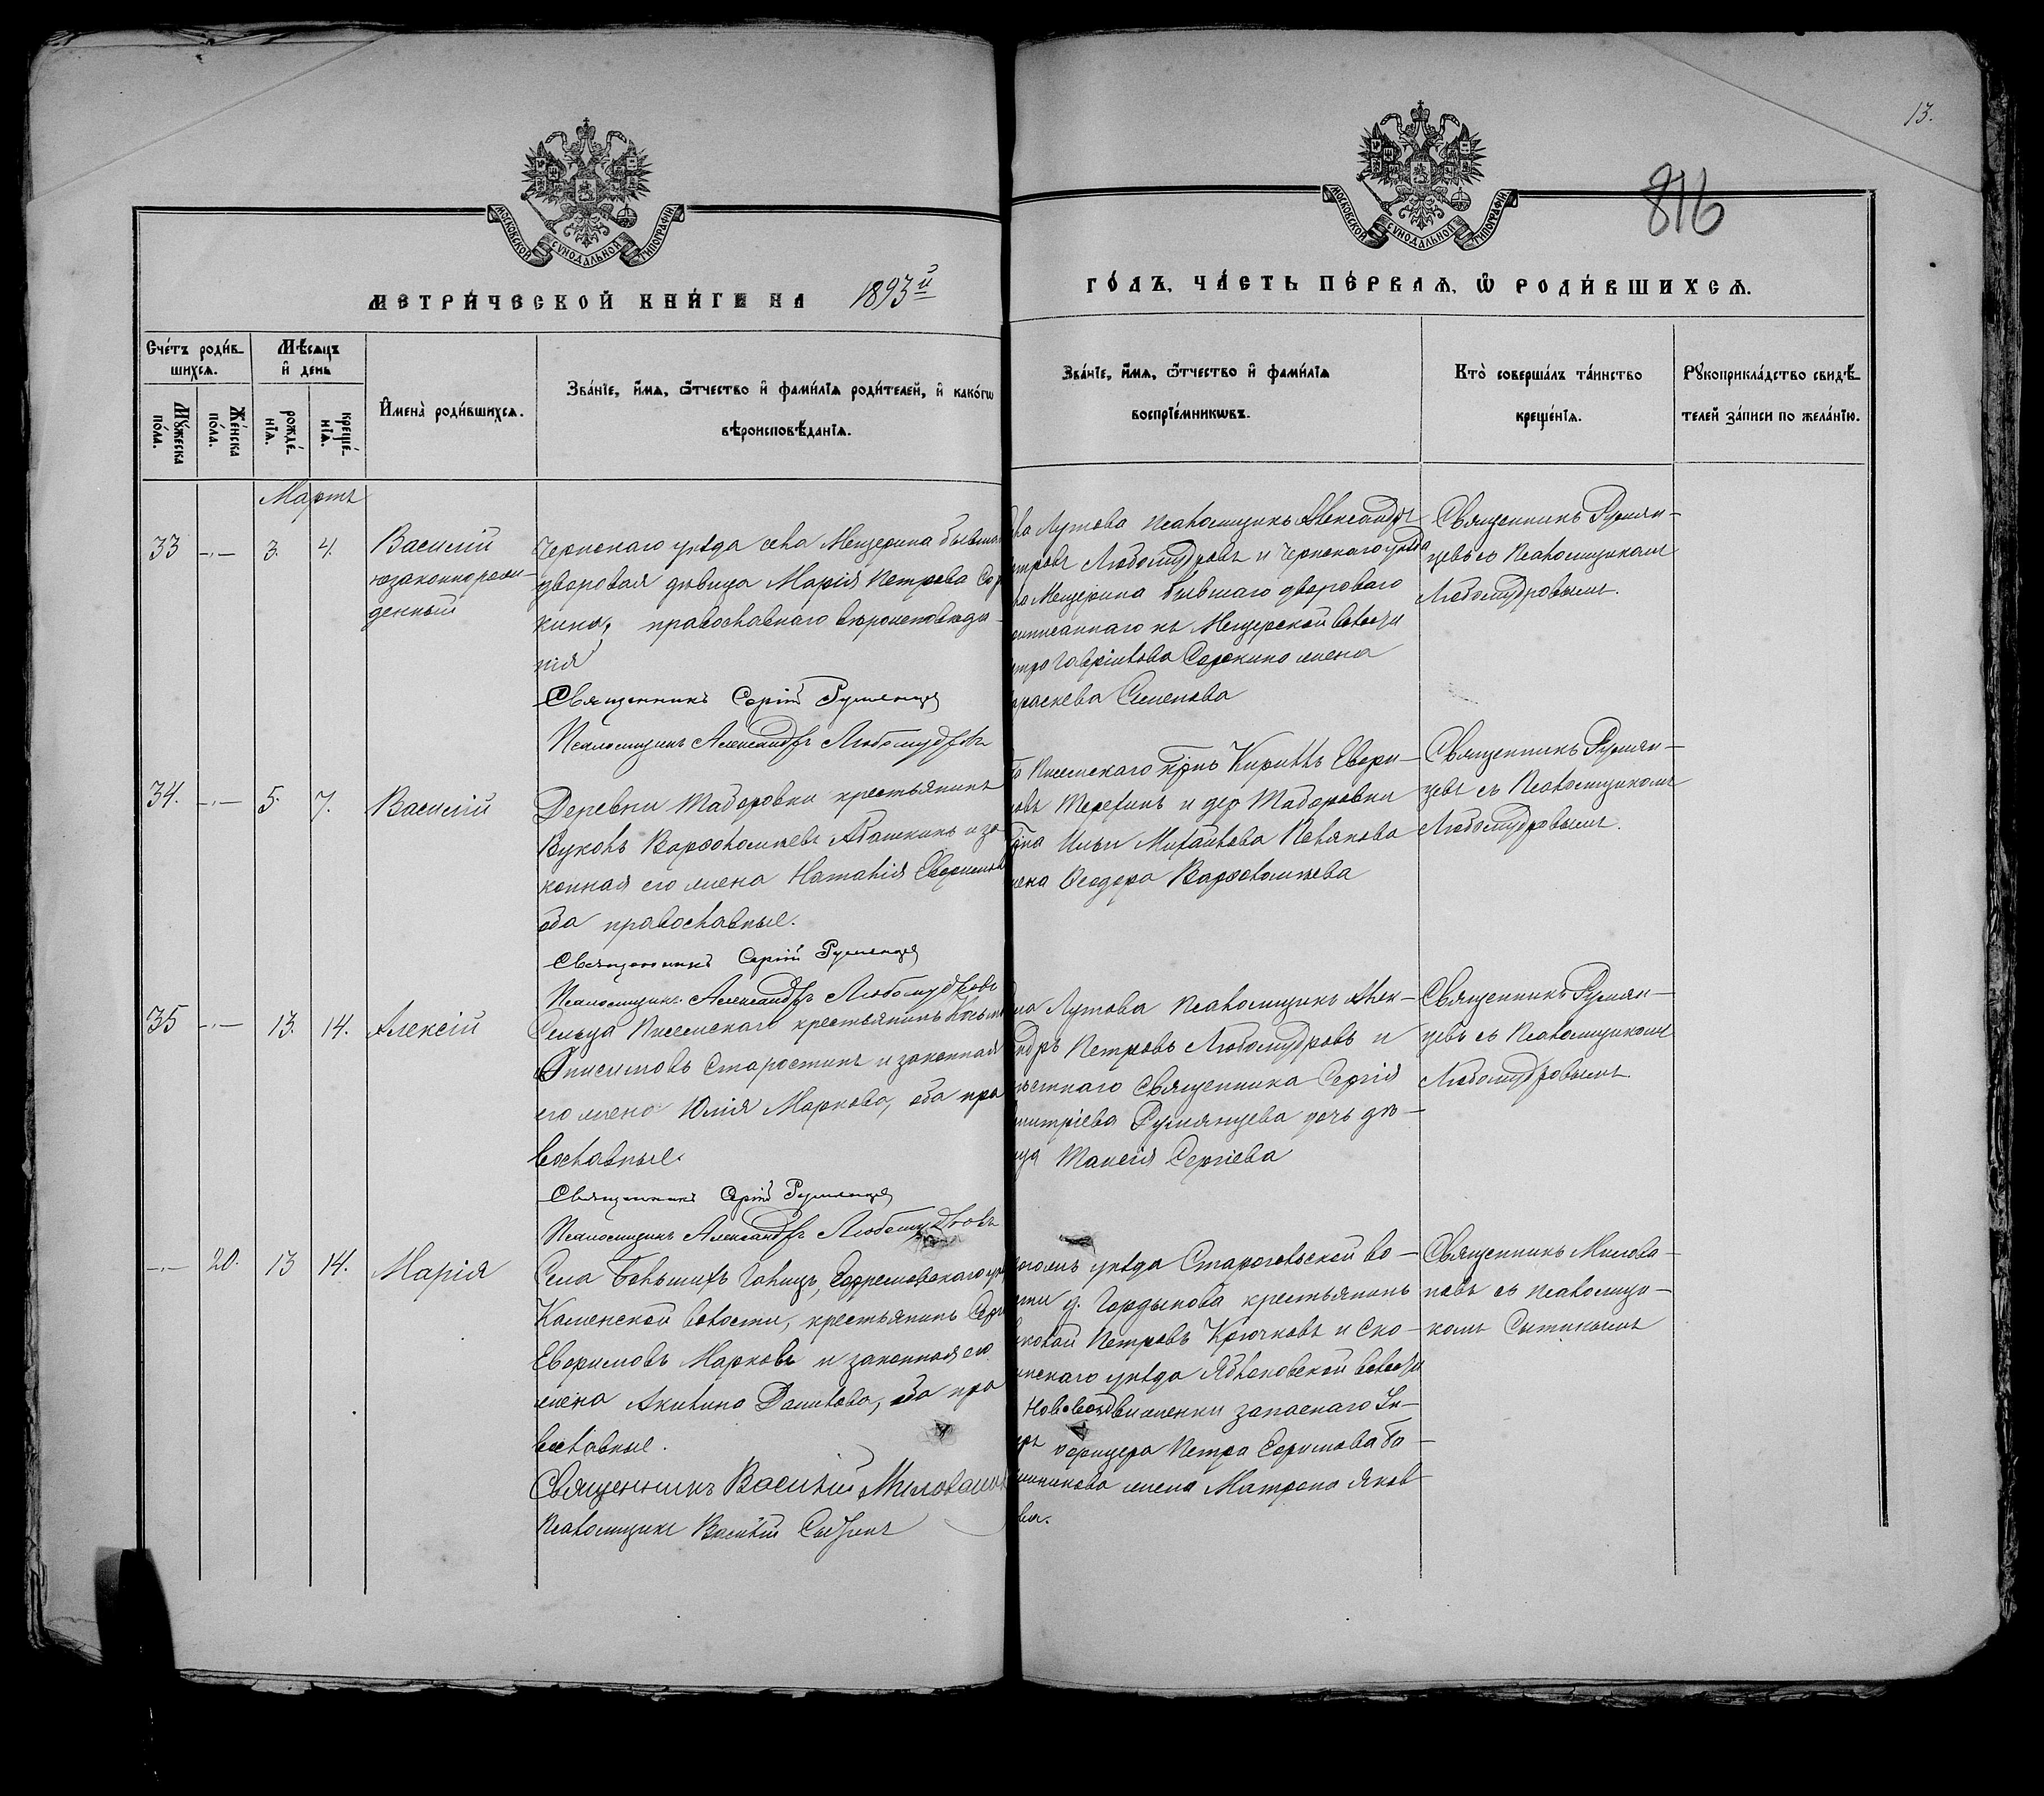 13.
816
МОСКОВСКОЙ СѴНОДАЛЬНОЙ ТИПОГРАФІИ
МОСКОВСКОЙ СѴНОДАЛЬНОЙ ТИПОГРАФІИ
МЕТРИ́ЧЕСКОЙ КНИ́ГИ НА 1893й
ГО́ДЪ, ЧА́СТЬ ПЕ́РВАѦ, Ѽ РОДИ́ВШИХСѦ.
Сче́тъ роди́в-
шихсѧ.
Мꙋ́жеска по́ла.
Же́нска по́ла.
Мѣ́сѧцъ
и҆ день
рожде́-нїѧ.
креще́-нїѧ.
И҆мена̀ роди́вшихсѧ.
Зва́нїе, и҆́мѧ, ѻ҆́тчество и҆ фами́лїѧ роди́телей, и҆ како́гѡ
вѣроисповѣ́данїѧ.
Зва́нїе, и҆́мѧ, ѻ҆́тчество и҆ фами́лїѧ
воспрїе́мникѡвъ.
Кто̀ соверша́лъ та́инство
креще́нїѧ.
Рꙋкоприкла́дство свидѣ́-
телей за́писи по жела́нїю.
Мартъ
33 -,,- 3. 4.
Василій
незаконнорож-
денный
Чернскаго уѣзда села Мещерина бывшая
дворовая дѣвица Марія Петрова Сор
кина, православнаго вѣроисповѣда-
нія
Священникъ Сергій Румянцев
Псаломщикъ Александръ Любомудровъ
Лутова псаломщикъ Александръ
тровъ Любомудровъ и Чернскаго уѣзда
ла Мещерина бывшаго двороваго
приписаннаго къ Мещерской волости
етра Гавріилова Сорокина жена
араскева Семенова
Священникъ Румян-
цевъ съ псаломщикомъ
Любомудровымъ.
34. -,,- 5. 7.
Василій
Деревни Таборовки крестьянинъ
Вуколъ Варѳоломѣевъ Абашкинъ и за-
конная его жена Наталія
оба православные.
Священникъ Сергій Румянцев
Псаломщикъ Александръ Любомудровъ
Писемскаго крнъ Кириллъ
овъ Терехинъ и дер Таборовки
Ильи Михаилова Полякова
жена Ѳеодора Варѳоломѣева
Священникъ Румян-
цевъ съ псаломщикомъ
Любомудровымъ.
35 -,,- 13. 14.
Алексій
Сельца Писемскаго крестьянинъ Косьма
Онисимовъ Старостинъ и законная
его жена Юлія Маркова, оба пра
вославные.
Священникъ Сергій Румянцев
Псаломщикъ Александръ Любомудровъ
ла Лутова псаломщикъ Алек-
андръ Петровъ Любомудровъ и
мѣстнаго священника Сергія
митріева Румянцева дочь дѣ-
ица Таисія Сергіева
Священникъ Румян-
цевъ съ псаломщикомъ
Любомудровымъ
-,,- 20. 13 14.
Марія
Села Большихъ Голицъ, Ефремовскаго у
Каменской волости, крестьянинъ
Марковъ и законная его
жена Акилина Данилова, оба пра
вославные.
Священникъ Василій Миловано
Псаломщикъ Василій Сытинъ
уѣзда Староголь­ской во-
сти д. Гордынова крестьянинъ
иколай Петровъ Крючковъ и Ско-
инскаго уѣзда волости
Нововоздвиженки запаснаго Ун-
ръ офицера Петра Ефимова
жена Матрона Яков-
ва.
Священникъ Милова-
новъ съ псаломщи-
комъ Сытинымъ